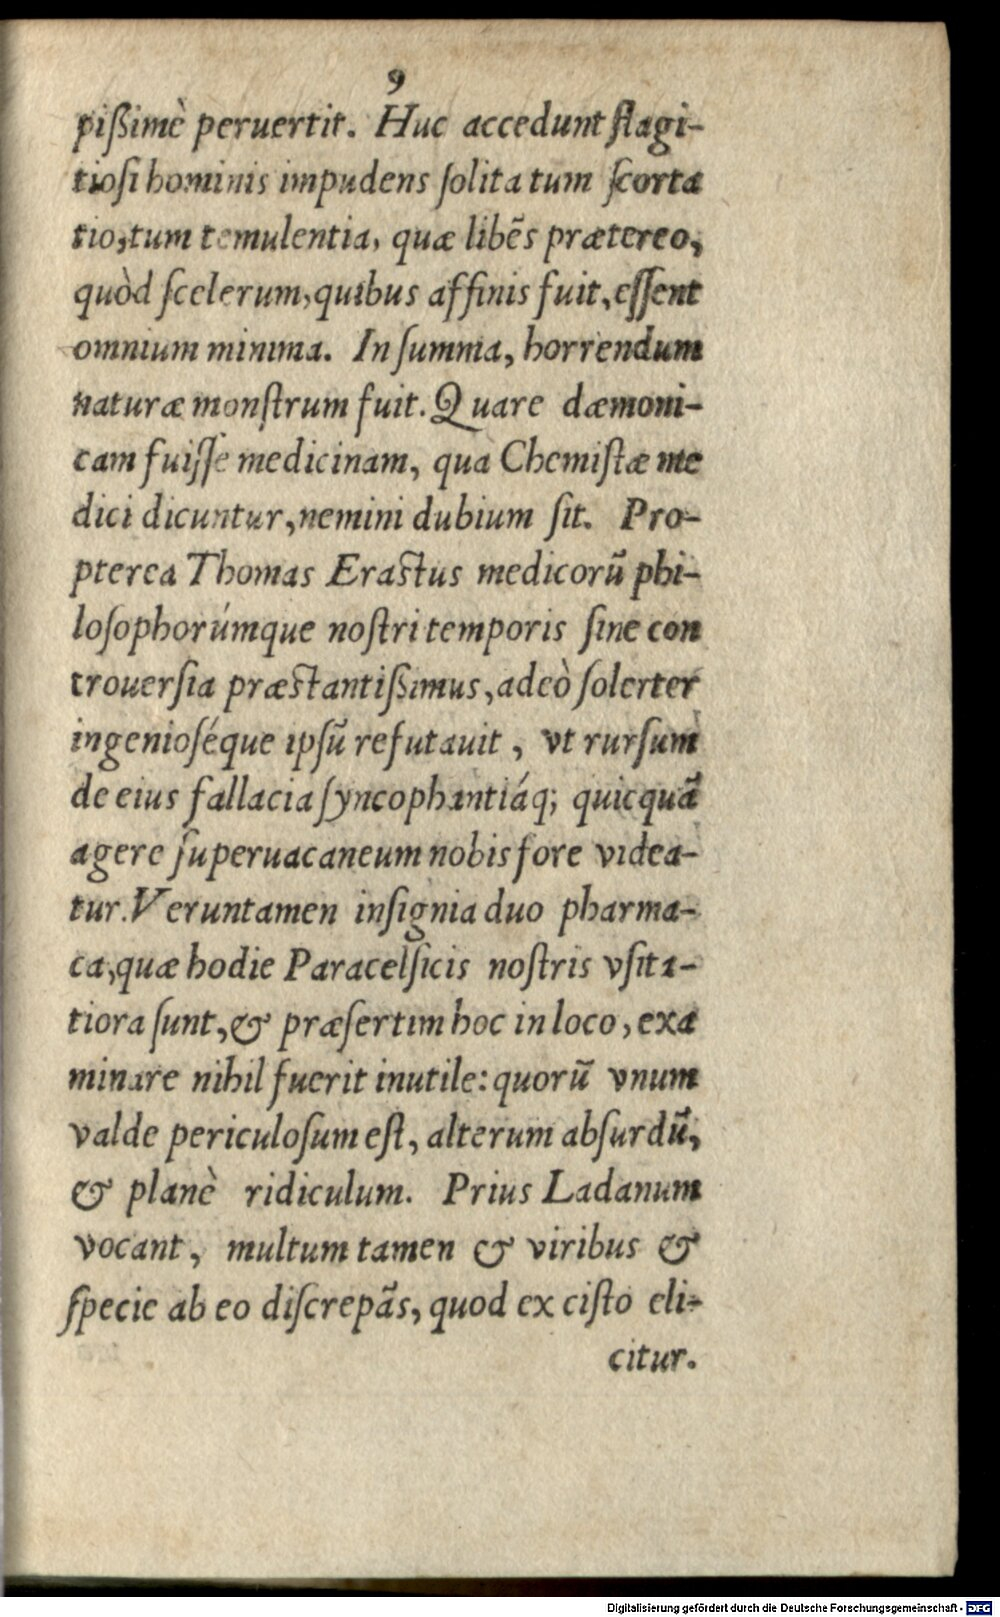 9
pißimè peruertit. Huc accedunt flagi-
tioſi hominis impudens ſolita tum ſcorta
tio, tum temulentia, quæ libẽs prætereo,
quòd ſcelerum, quibus affinis fuit, eſſent
omnium minima. In ſumma, horrendum
naturæ monſtrum fuit. Quare dæmoni-
cam fuiſſe medicinam, qua Chemiſtæ me
dici dicuntur, nemini dubium ſit. Pro-
pterea Thomas Eraſtus medicorũ phi-
loſophorúmque noſtri temporis ſine con
trouerſia præſtantißimus, adeò ſolerter
ingenioſéque ipſũ refutauit, vt rurſum
de eius fallacia ſyncophantiáq; quicquã
agere ſuperuacaneum nobis fore videa-
tur. Veruntamen inſignia duo pharma-
ca, quæ hodie Paracelſicis noſtris vſita-
tiora ſunt, & præſertim hoc in loco, exa
minare nihil fuerit inutile: quorũ vnum
valde periculoſum eſt, alterum abſurdũ,
& planè ridiculum. Prius Ladanum
vocant, multum tamen & viribus &
ſpecie ab eo diſcrepãs, quod ex ciſto eli-
citur.
Digitalisierung gefördert durch die Deutsche Forschungsgemeinschaft - DFG